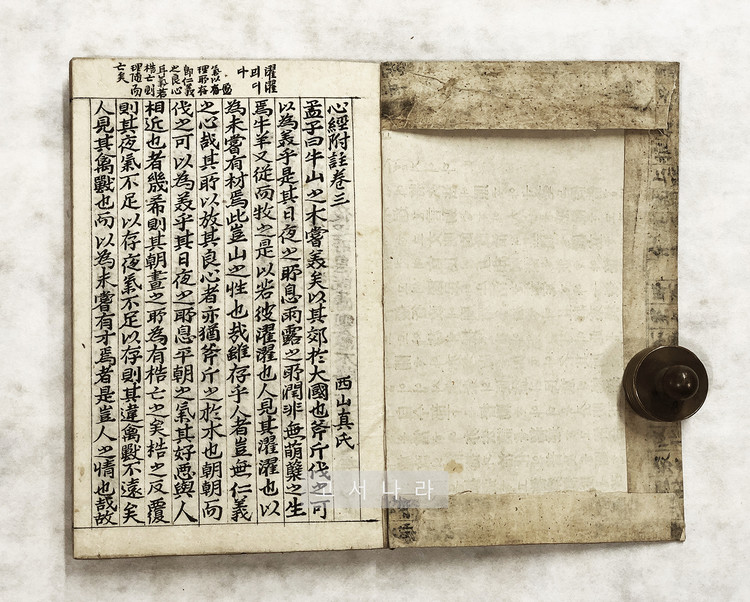 濯濯
即仁義
之良心
梏亡則
理随而
亡矣
心經附註卷三 西山真氏
孟子曰牛山之木嘗美矣以其郊於大國也斧斤伐之可
以為美乎是其日夜之所息雨露之所潤非無萌蘖之生
焉牛羊又從而牧之是以若彼濯濯也人見其濯濯也以
為未嘗有材焉此豈山之性也哉雖存乎人者豈無仁義
之心哉其所以放其良心者亦猶斧斤之於木也朝朝而
伐之可以為美乎其日夜之所息平朝之氣其好惡與人
相近也者幾希則其朝晝之所為有梏亡之矣梏之反覆
則其夜氣不足以存夜氣不足以存則其違禽獸不遠矣
人見其禽獸也而以為未嘗有才焉者是豈人之情也哉故
고서나라